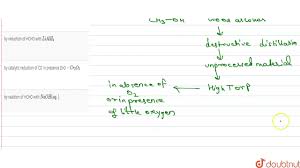 by reduction of HCHO with LiAlH4
by catalytic reduction of CO in presence ZnO - Cr2O3
by reaction of HCHO with NaOH(aq.)
CH3-OH
wood alcohol
destructive distillation
unprocessed material
High Temp
in absence of
O2
or in presence
of little oxygen
doubtnut